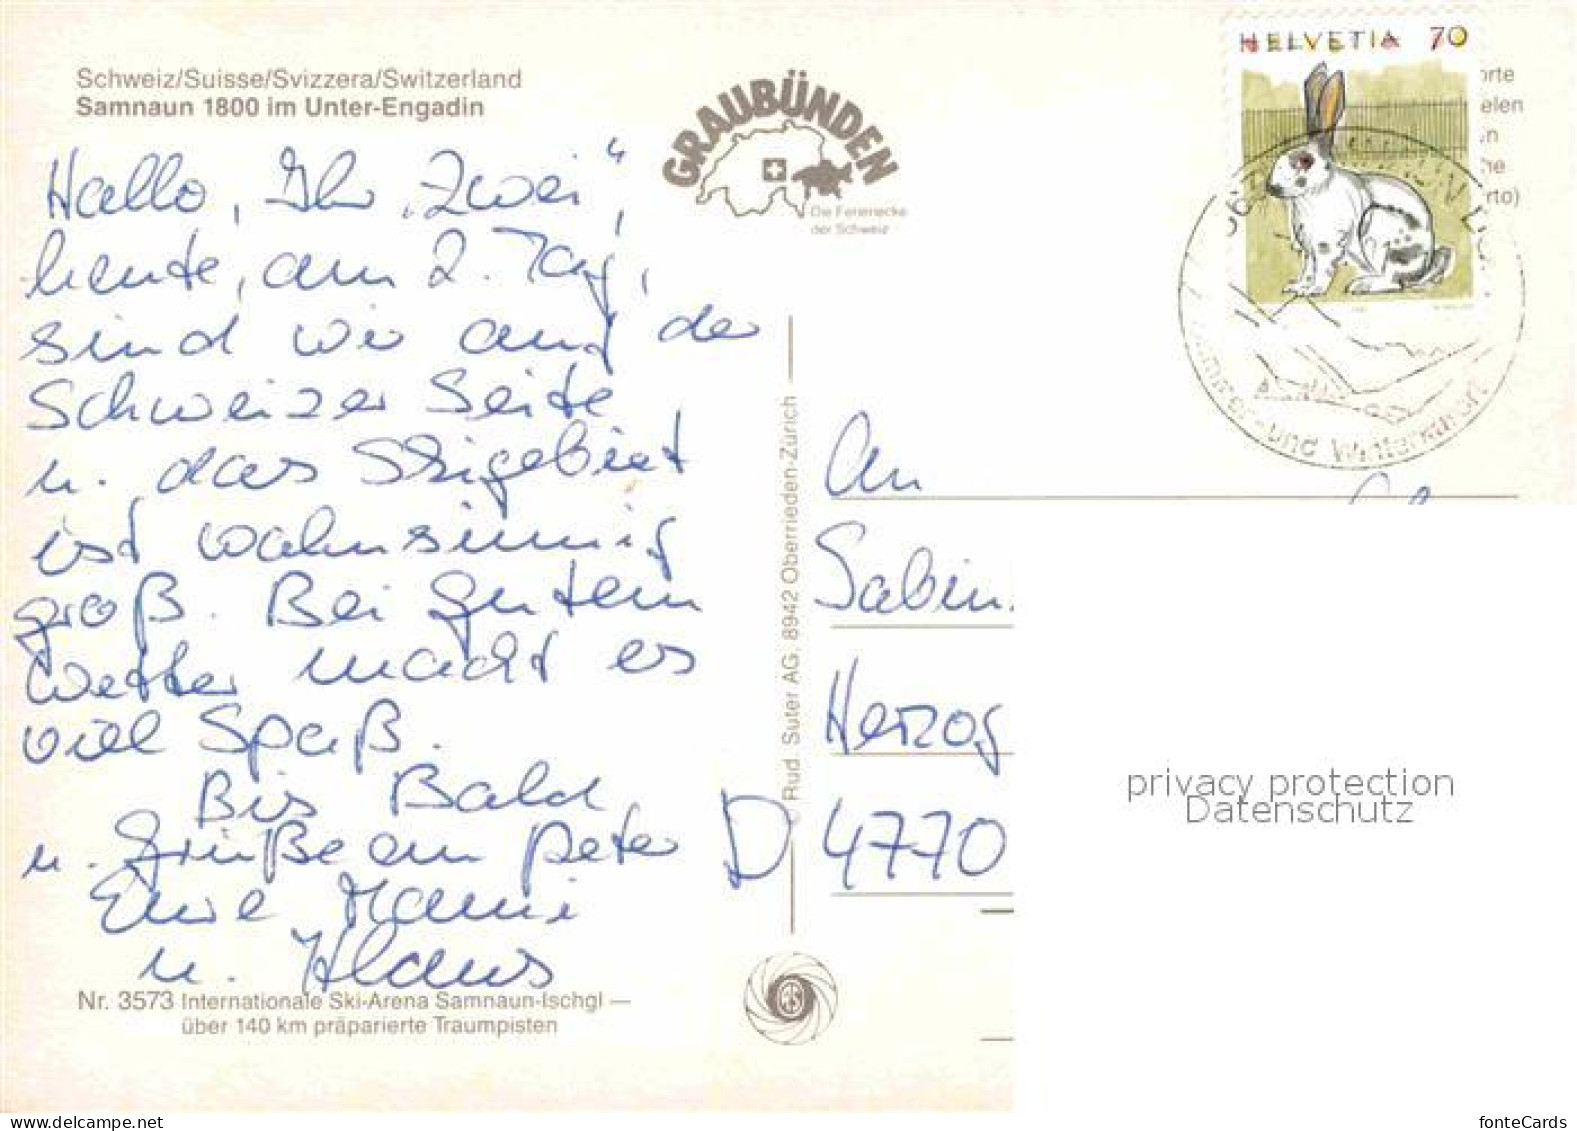 Schweiz/Suisse/Svizzera/Switzerland
Samnaun 1800 im Unter-Engadin
GRAUBÜNDEN
Die Ferienecke
der Schweiz
HELVETIA 70
orte
elen
en
che
rto)
und Wintersport
Hallo, Ihr „Zwei“,
heute, am 2. Tag,
sind wir auf der
Schweizer Seite
u. das Skigebiet
ist wahnsinnig
groß. Bei gutem
Wetter macht es
viel Spaß.
Bis Bald
u. Grüße an Peter
Eure Mami
u. Klaus
Rud. Suter AG, 8942 Oberrieden-Zürich
An
Sabin
Herzog
D 4770
Nr. 3573 Internationale Ski-Arena Samnaun-Ischgl —
über 140 km präparierte Traumpisten
privacy protection
Datenschutz
www.delcampe.net
fonteCards